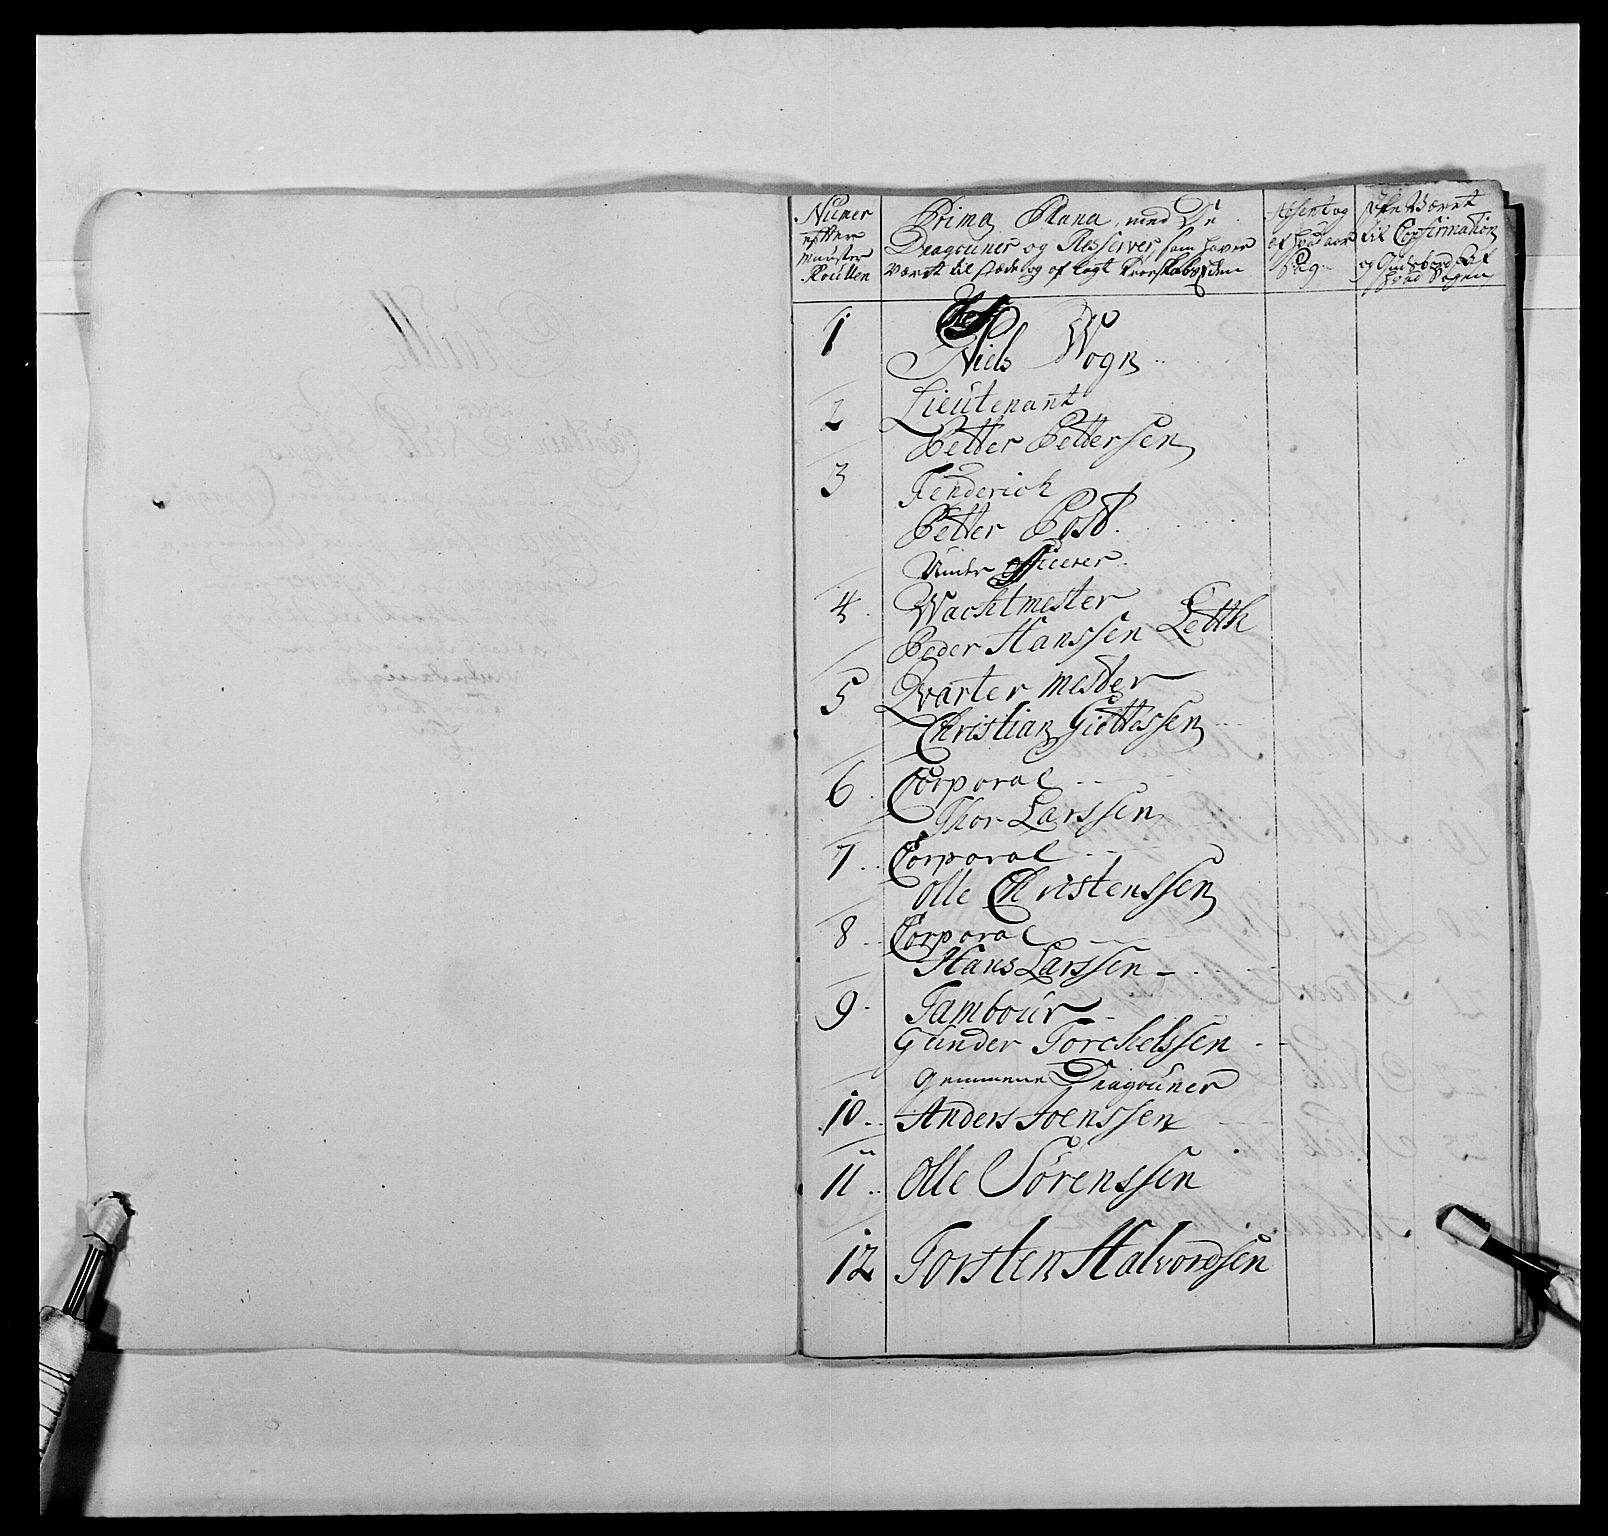 Numer
efter
Munster
Roullen
Prima Plana, med De
Dragouner og Resserver, som haver
været til stæde og af lagt Troeskabs Eden
Absent og
af hvad aar
sag
Ilke Været
til Confirmation
og
1
Chef
Niels Wogn
2 Lieutenant
Petter Pettersen
3 Fenderich
Petter Post.
Under officerer.
4 Wachtmester
Peder Hanssen Letth
5 Qvarter mester
Christian Giettessen
6 Corporal
Thor Larssen
7 Corporal
Olle Christenssen
8 Corporal
Hans Larssen
9 Tambour
Gunder Torchelssen
gemmene Dragouner
10 Anders Joenssen
11 Olle Sørenssen
12 Torsten Halvordsen